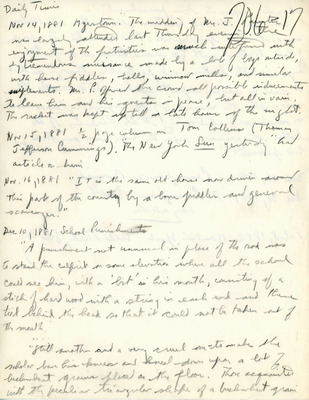 Daily Times
Nov 14, 1881 Myerstown. The wedding of Mr. J.
was largely attended last Thursday evening. The
enjoyment of the festivities was much interfered with
by tremendous nuisance made by a lot of boys outside,
with horse fiddles, bells, winnow mills, and similar
implements. Mr. P. offered the crowd all possible inducements
to leave him and his guests in peace, but all in vain.
The racket was kept up till a late hour of the night.
Nov 15, 1881 1/2 page column on Tom Collins (Thomas
Jefferson Cummings). The New York Sun yesterday had
article on him
Nov. 16, 1881 "It is the same old horse now driven around
this part of the country by a bone peddler and general
scavenger."
Dec 10, 1881 School Punishments
"A punishment not unusual in place of the rod was
to stand the culprit on some elevation where all the school
could see him, with a 'bit' in his mouth, consisting of a
stick of hard wood with a string in each end and these
tied behind the head so that it could not be taken out of
the mouth.
"Still another and a very cruel one to make the
scholar bare his knees and kneel down upon a lot of
buckwheat grains placed on the floor. Those acquainted
with the peculiar triangular shape of a buckwheat grain